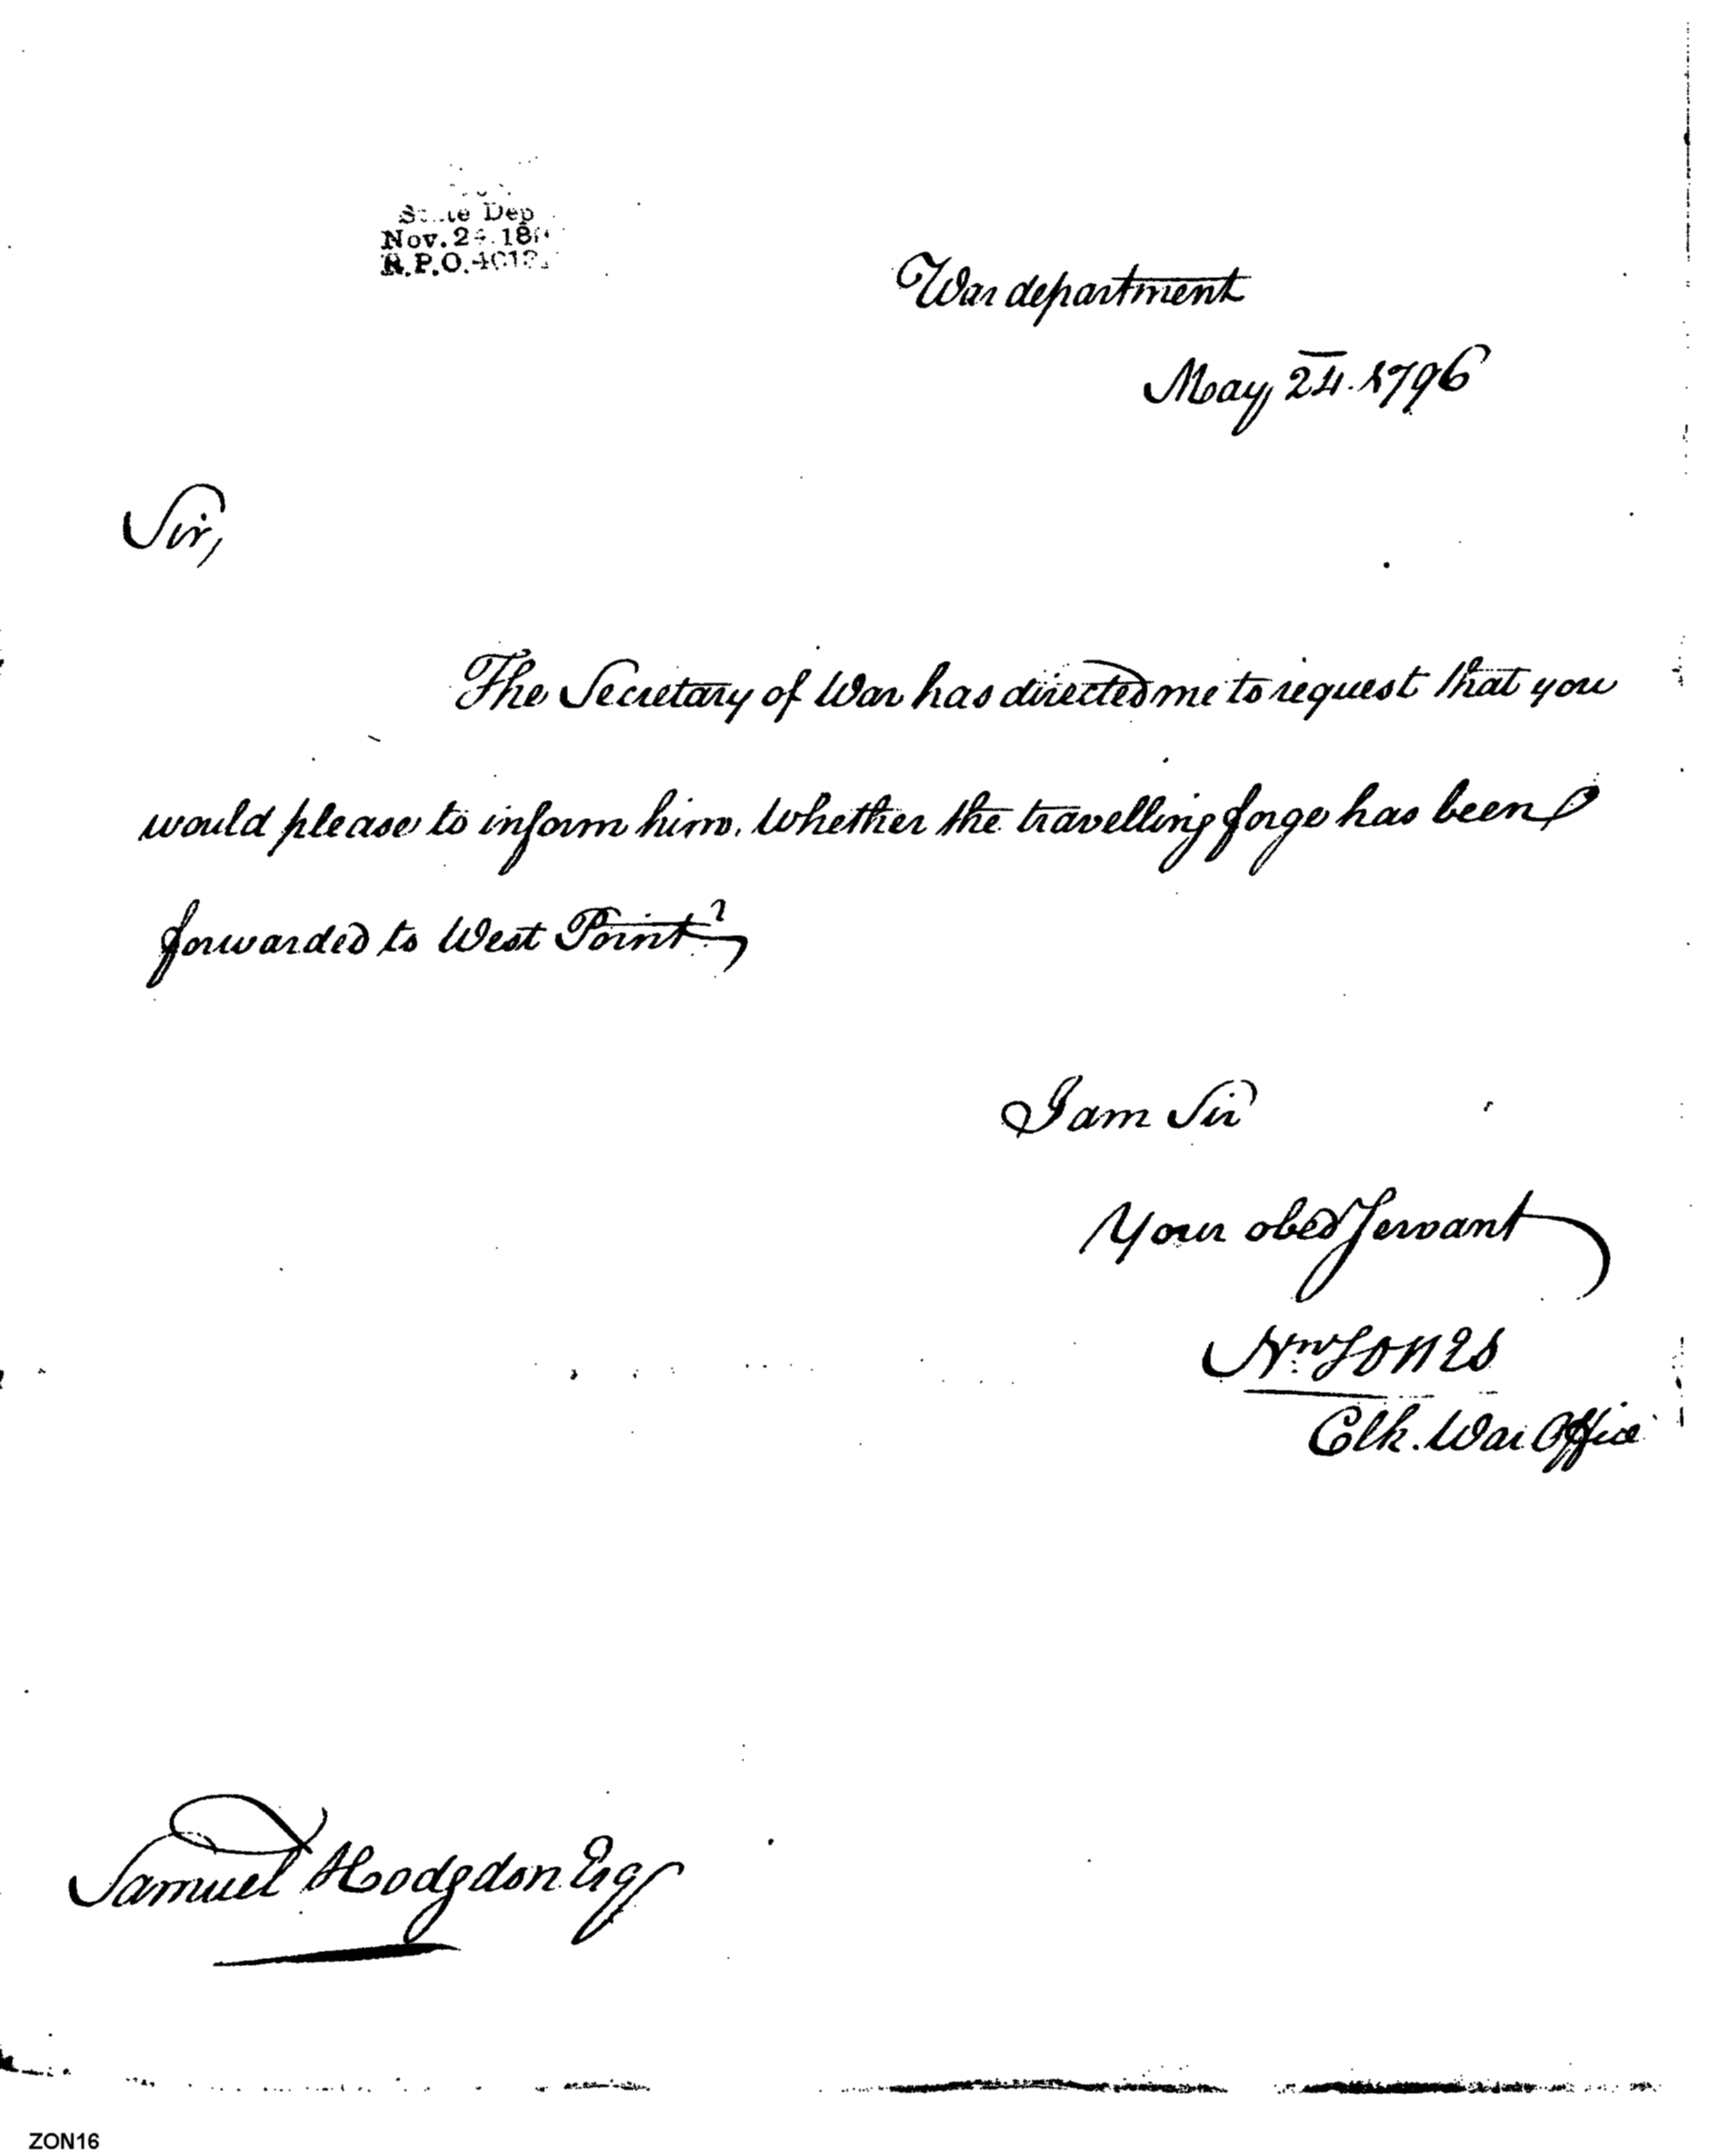 State Dep
Nov. 2
R.P.O.
War department
May 24. 1796
Sir,
The Secretary of War has directed me to request that you
would please to inform him, whether the travelling forge has been
forwarded to West Point?
I am Sir
Your obed Servant
Nn Jones
Clk. War Office
Samuel Hodgdon Esq
ZON16